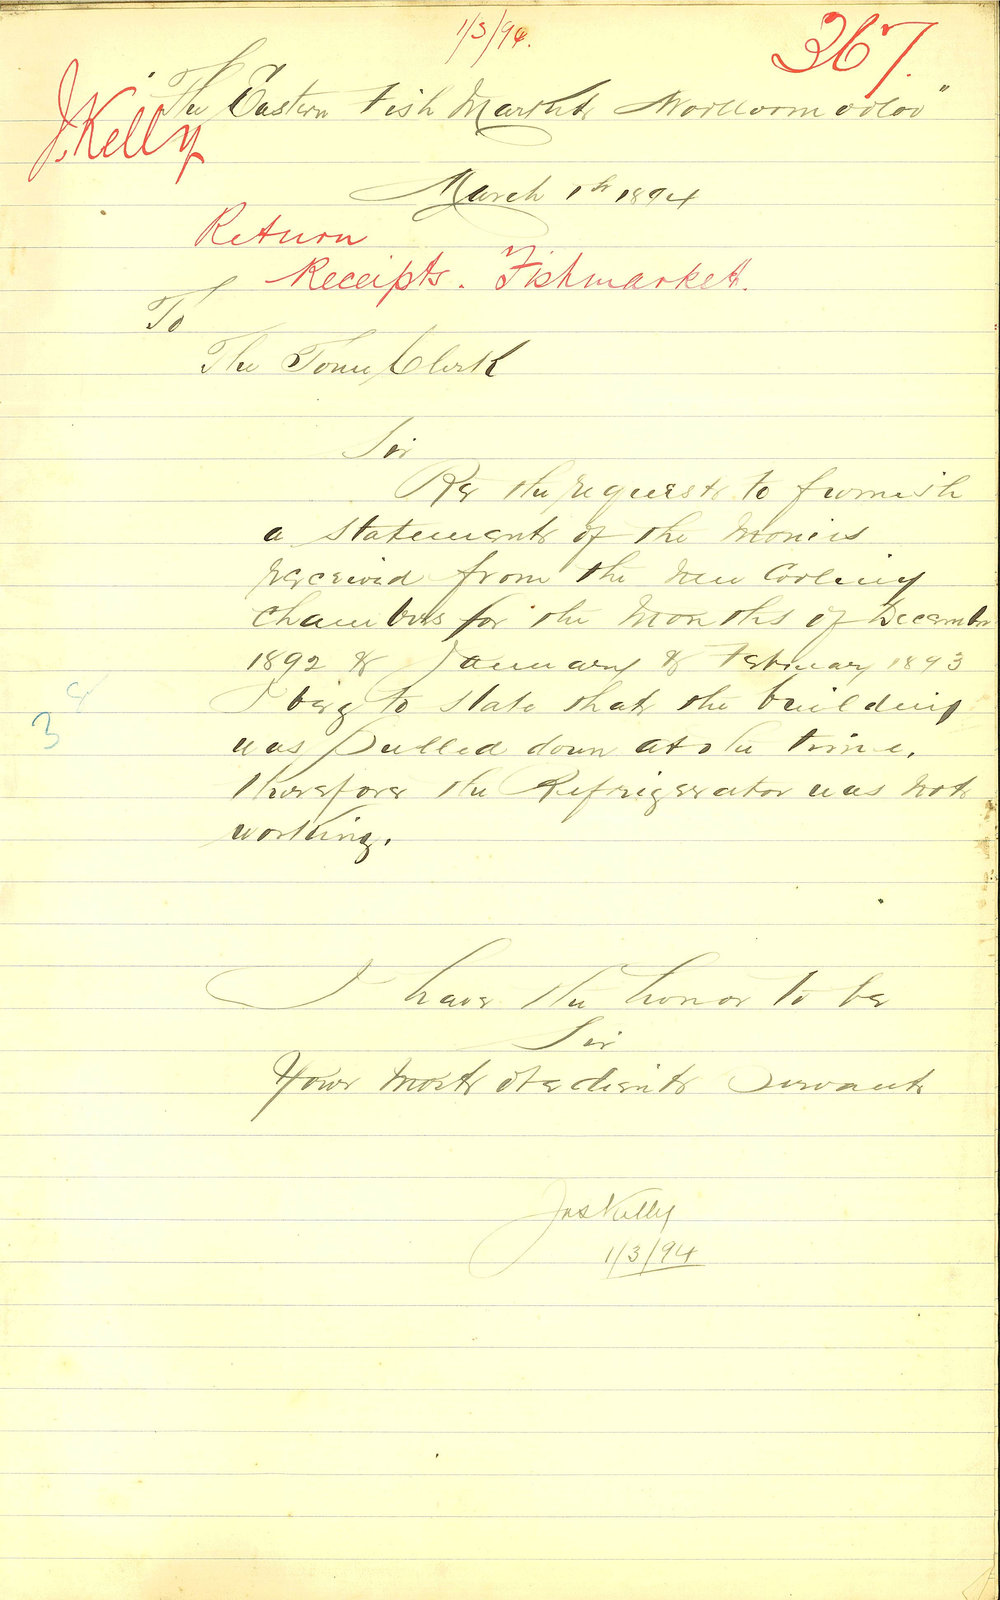 1/3/94.
367.
J. Kelly
"The Eastern Fish Market Woolloomooloo"
March 1st 1894
Return
Receipts. Fishmarket.
To
The Town Clerk
Sir
Re the request to furnish
a statement of the monies
received from the new cooling
chambers for the months of December
1892 & January & February 1893
I beg to state that the building
was pulled down at the time,
therefore the Refrigerator was not
working.
3
I have the honor to be
Sir
Your most obedient Servant
Jas Kelly
1/3/94